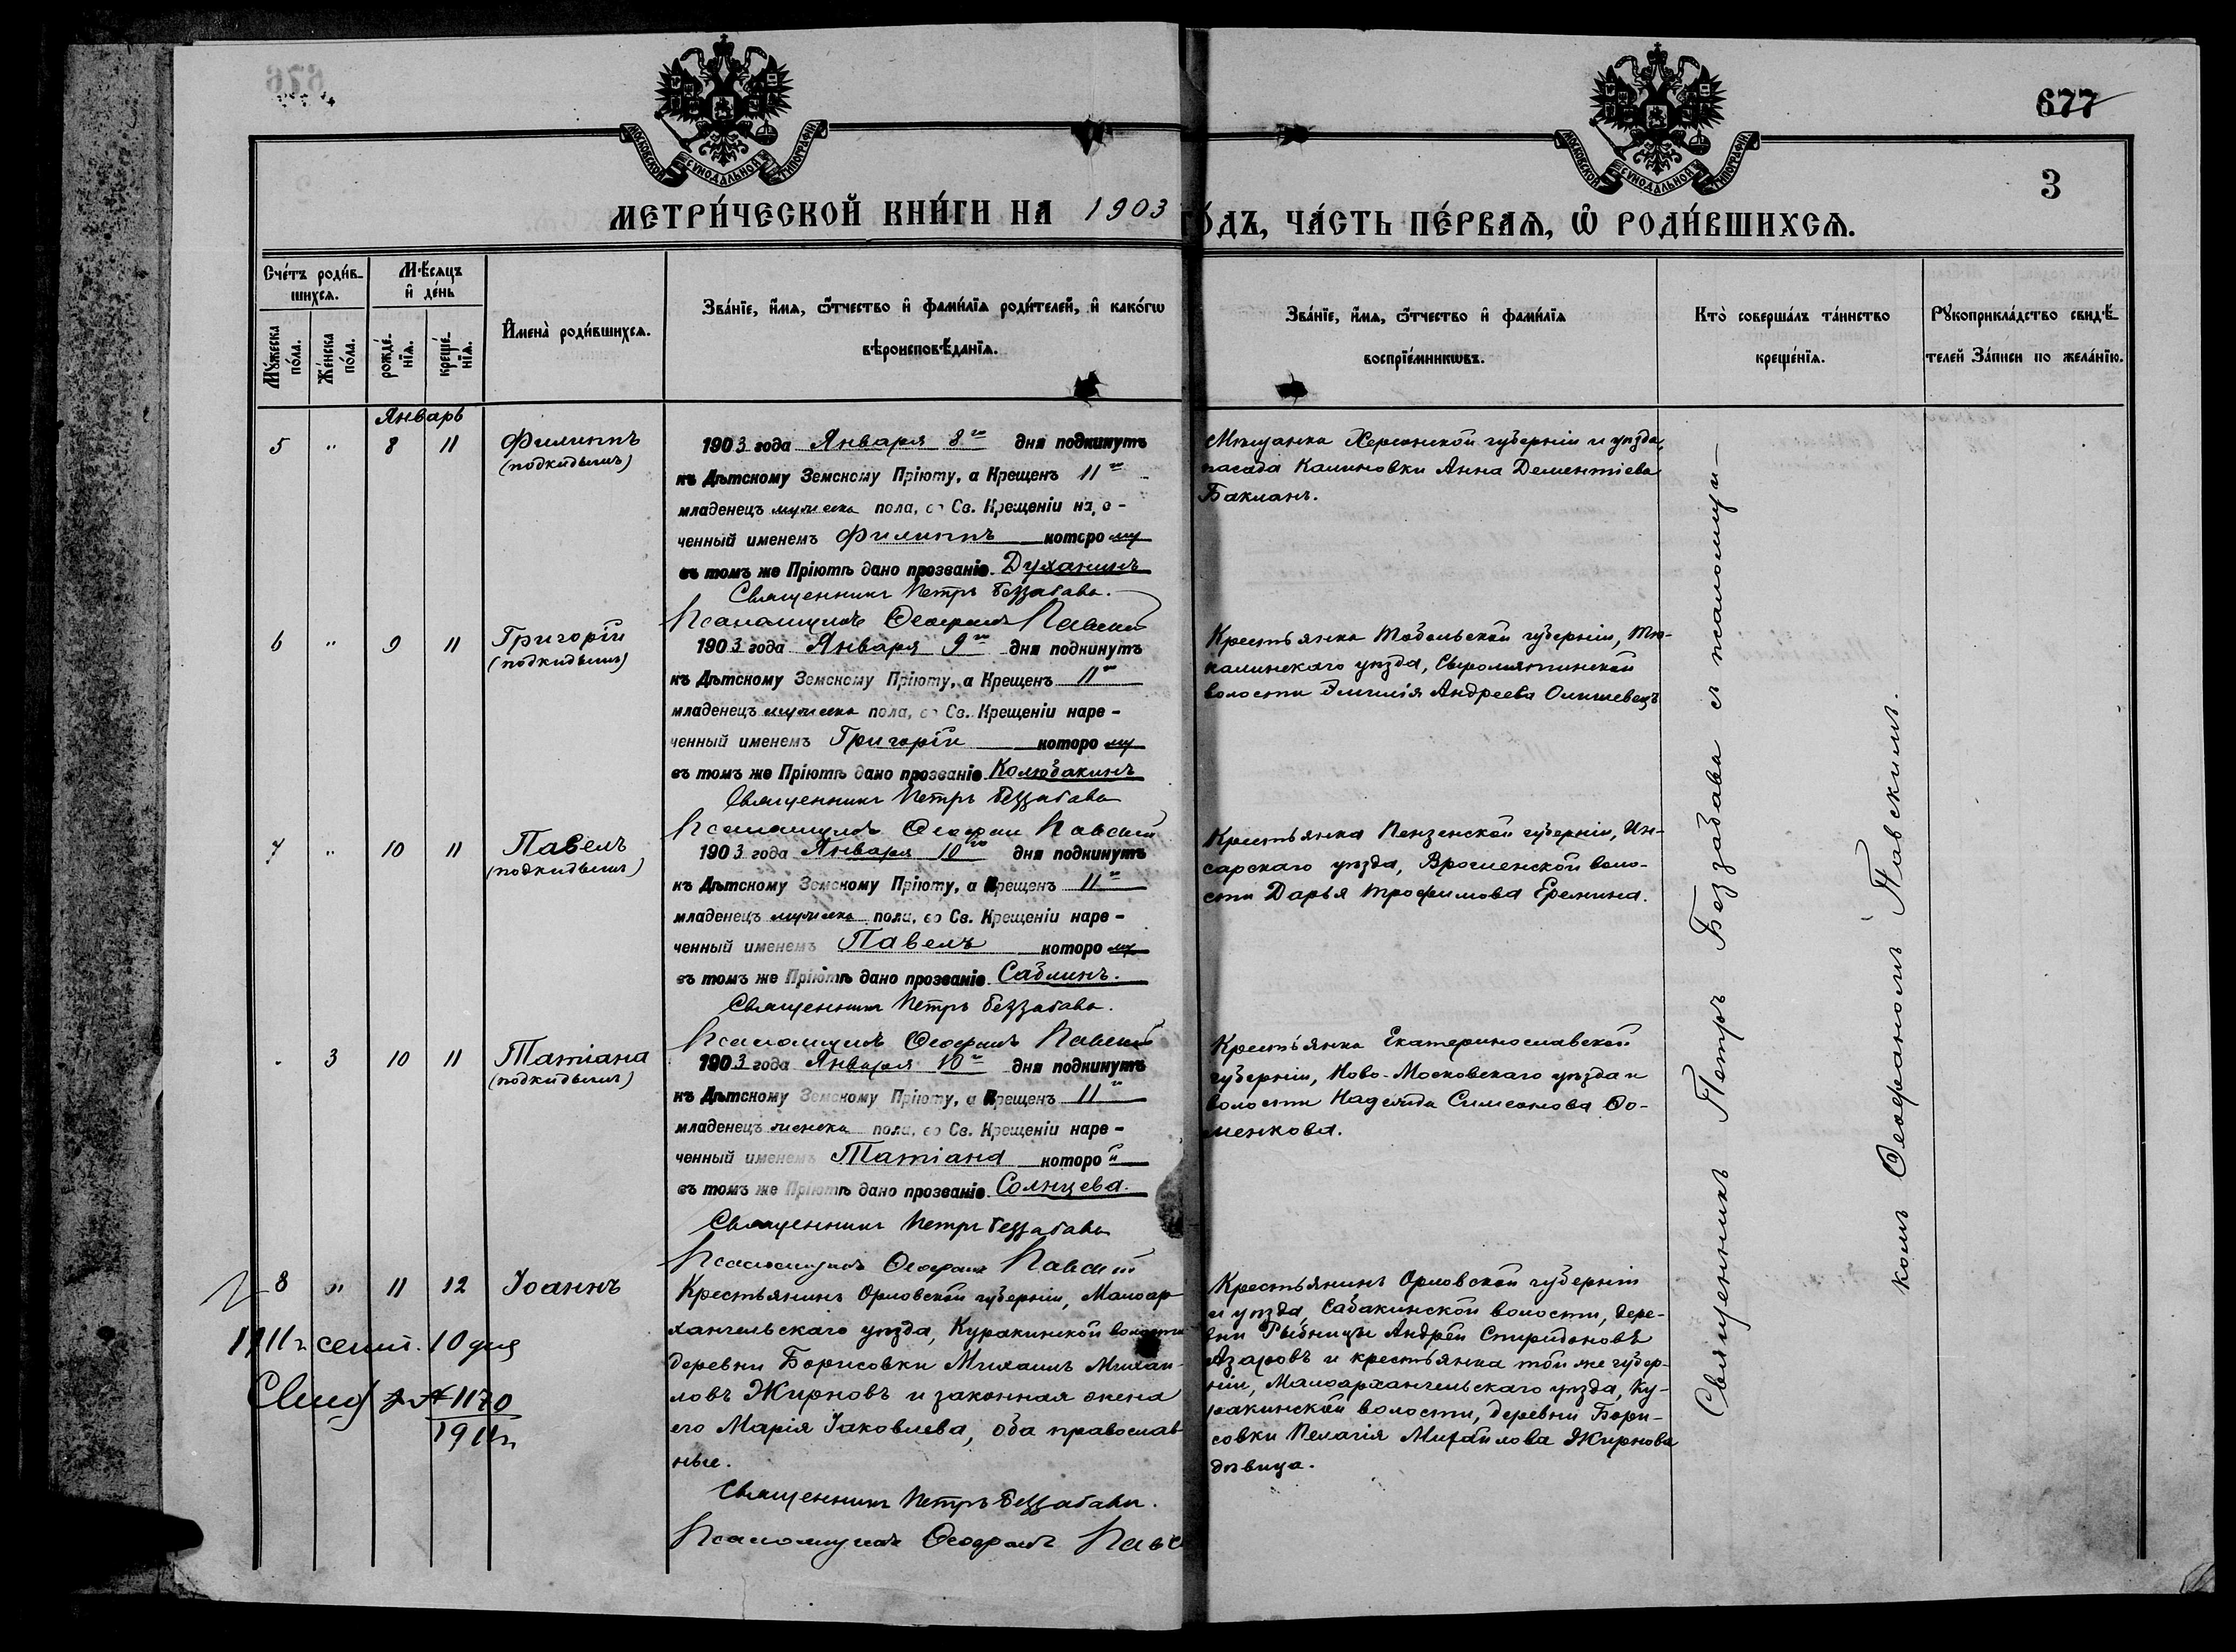 676
677
3
МОСКОВСКОЙ СѴНОДАЛЬНОЙ ТИПОГРАФІИ
МОСКОВСКОЙ СѴНОДАЛЬНОЙ ТИПОГРАФІИ
МЕТРИ́ЧЕСКОЙ КНИ́ГИ НА 1903 ГО́ДЪ, ЧА́СТЬ ПЕ́РВАѦ, Ѽ РОДИ́ВШИХСѦ.
Сче́тъ роди́в-
шихсѧ.
Мѣ́сѧцъ
и҆ де́нь
Мꙋ́жеска по́ла.
Же́нска по́ла.
рожде́-
нїѧ.
креще́-
нїѧ.
И҆мена̀ роди́вшихсѧ.
Зва́нїе, и҆́мѧ, ѻ҆́тчество и҆ фами́лїѧ роди́телей, и҆ како́гѡ
вѣроисповѣ́данїѧ.
Зва́нїе, и҆́мѧ, ѻ҆́тчество и҆ фами́лїѧ
воспрїе́мникѡвъ.
Кто̀ соверша́лъ та́инство
креще́нїѧ.
Рꙋкоприкла́дство свидѣ́-
телей За́писи по жела́нїю.
Январь
5 " 8 11 Филиппъ
(подкидышъ)
1903 года Января 8го дня подкинутъ
къ Дѣтскому Земскому Пріюту, а Крещенъ 11го
младенецъ мужеска пола, во Св. Крещеніи наре-
ченный именемъ Филиппъ которому
въ томъ же Пріютѣ дано прозваніе Духанинъ
Священникъ Петръ Беззабава.
Псаломщикъ Ѳеофанъ Павскій
Мѣщанка Херсонской губерніи и уѣзда,
посада Калиновки Анна Дементіева
Бакланъ.
6 " 9 11 Григорій
(подкидышъ)
1903 года Января 9го дня подкинутъ
къ Дѣтскому Земскому Пріюту, а Крещенъ 11го
младенецъ мужеска пола, во Св. Крещеніи наре-
ченный именемъ Григорій которому
въ томъ же Пріютѣ дано прозваніе Колюбакинъ
Священникъ Петръ Беззабава
Псаломщикъ Ѳеофанъ Павскій
Крестьянка Тобольской губерніи, Тю-
калинскаго уѣзда, Сыропятинской
волости Эмилія Андреева Олишевецъ
7 " 10 11 Павелъ
(подкидышъ)
1903 года Января 10го дня подкинутъ
къ Дѣтскому Земскому Пріюту, а Крещенъ 11го
младенецъ мужеска пола, во Св. Крещеніи наре-
ченный именемъ Павелъ которому
въ томъ же Пріютѣ дано прозваніе Саблинъ.
Священникъ Петръ Беззабава.
Псаломщикъ Ѳеофанъ Павскій
Крестьянка Пензенской губерніи, Ин-
сарскаго уѣзда, воло-
сти Дарья Трофимова Еремина.
" 3 10 11 Татіана
(подкидышъ)
1903 года Января 10го дня подкинутъ
къ Дѣтскому Земскому Пріюту, а Крещенъ 11го
младенецъ женска пола, во Св. Крещеніи наре-
ченный именемъ Татіана которой
въ томъ же Пріютѣ дано прозваніе Солнцева.
Священникъ Петръ Беззабава
Псаломщикъ Ѳеофанъ Павскій
Крестьянка Екатеринославской
губерніи, Ново-Московскаго уѣзда и
волости Надежда Симеонова Ѳо-
менкова.
8 " 11 12 Іоаннъ
1911 г. сент. 10 дня
№ 1170
1911 г.
Крестьянинъ Орловской губерніи, Малоар-
хангельскаго уѣзда, Куракинской волости
деревни Борисовки Михаилъ Михаи-
ловъ Жирновъ и законная жена
его Марія Іаковлева, оба православ-
ные.
Священникъ Петръ Беззабава.
Псаломщикъ Ѳеофанъ Павс
Крестьянинъ Орловской губерніи
и уѣзда, Сабакинской волости, дере-
вни Рыбницы Андрей Спиридоновъ
Азаровъ и крестьянка той же губер-
ніи, Малоархангельскаго уѣзда, Ку-
ракинской волости, деревни Бори-
совки Пелагія Михаилова Жирнова
дѣвица.
Священникъ Петръ Беззабава съ псаломщи-
комъ Ѳеофаномъ Павскимъ.